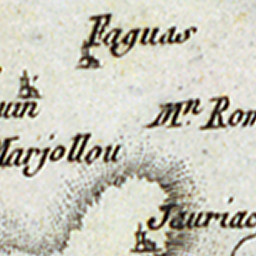 Faguas
uin
Mn. Rom
Marjollou
Jauriac